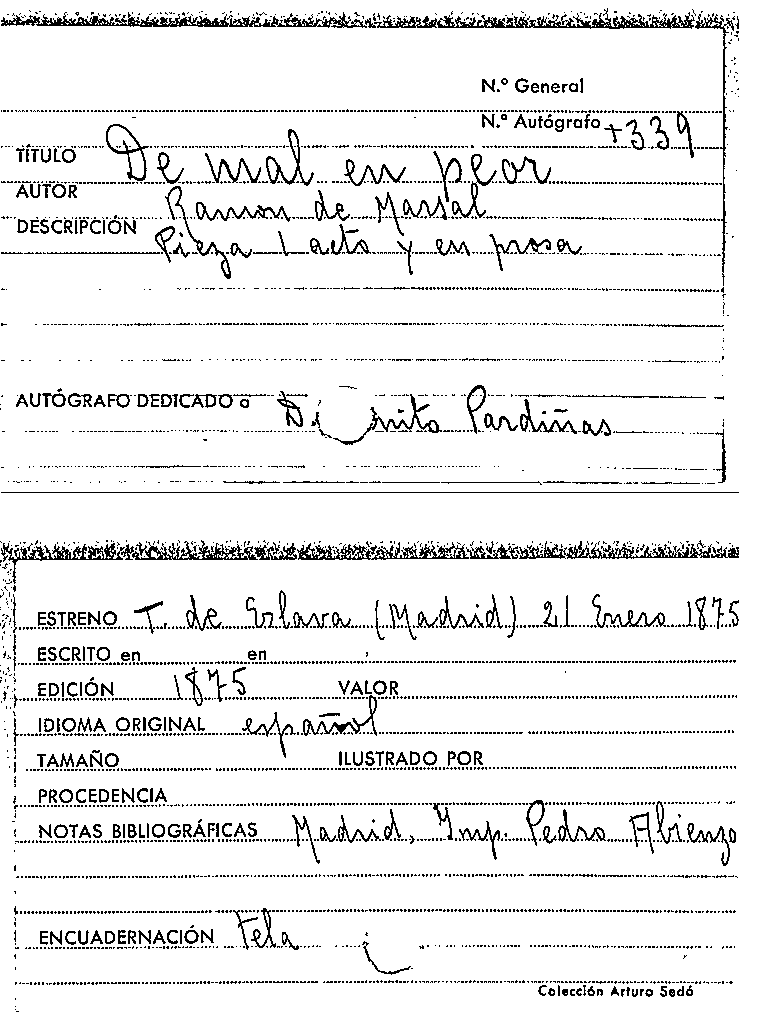 N.º General
N.º Autógrafo +339
TÍTULO De mal en peor
AUTOR Ramon de Marsal
DESCRIPCIÓN Pieza 1 acto y en prosa
AUTÓGRAFO DEDICADO a Pardiñas
ESTRENO T. de Eslava (Madrid) 21 Enero 1875
ESCRITO en en
EDICIÓN 1875 VALOR
IDIOMA ORIGINAL español
TAMAÑO ILUSTRADO POR
PROCEDENCIA
NOTAS BIBLIOGRÁFICAS Madrid, Imp. Pedro Abienzo
ENCUADERNACIÓN tela
Colección Arturo Sedó